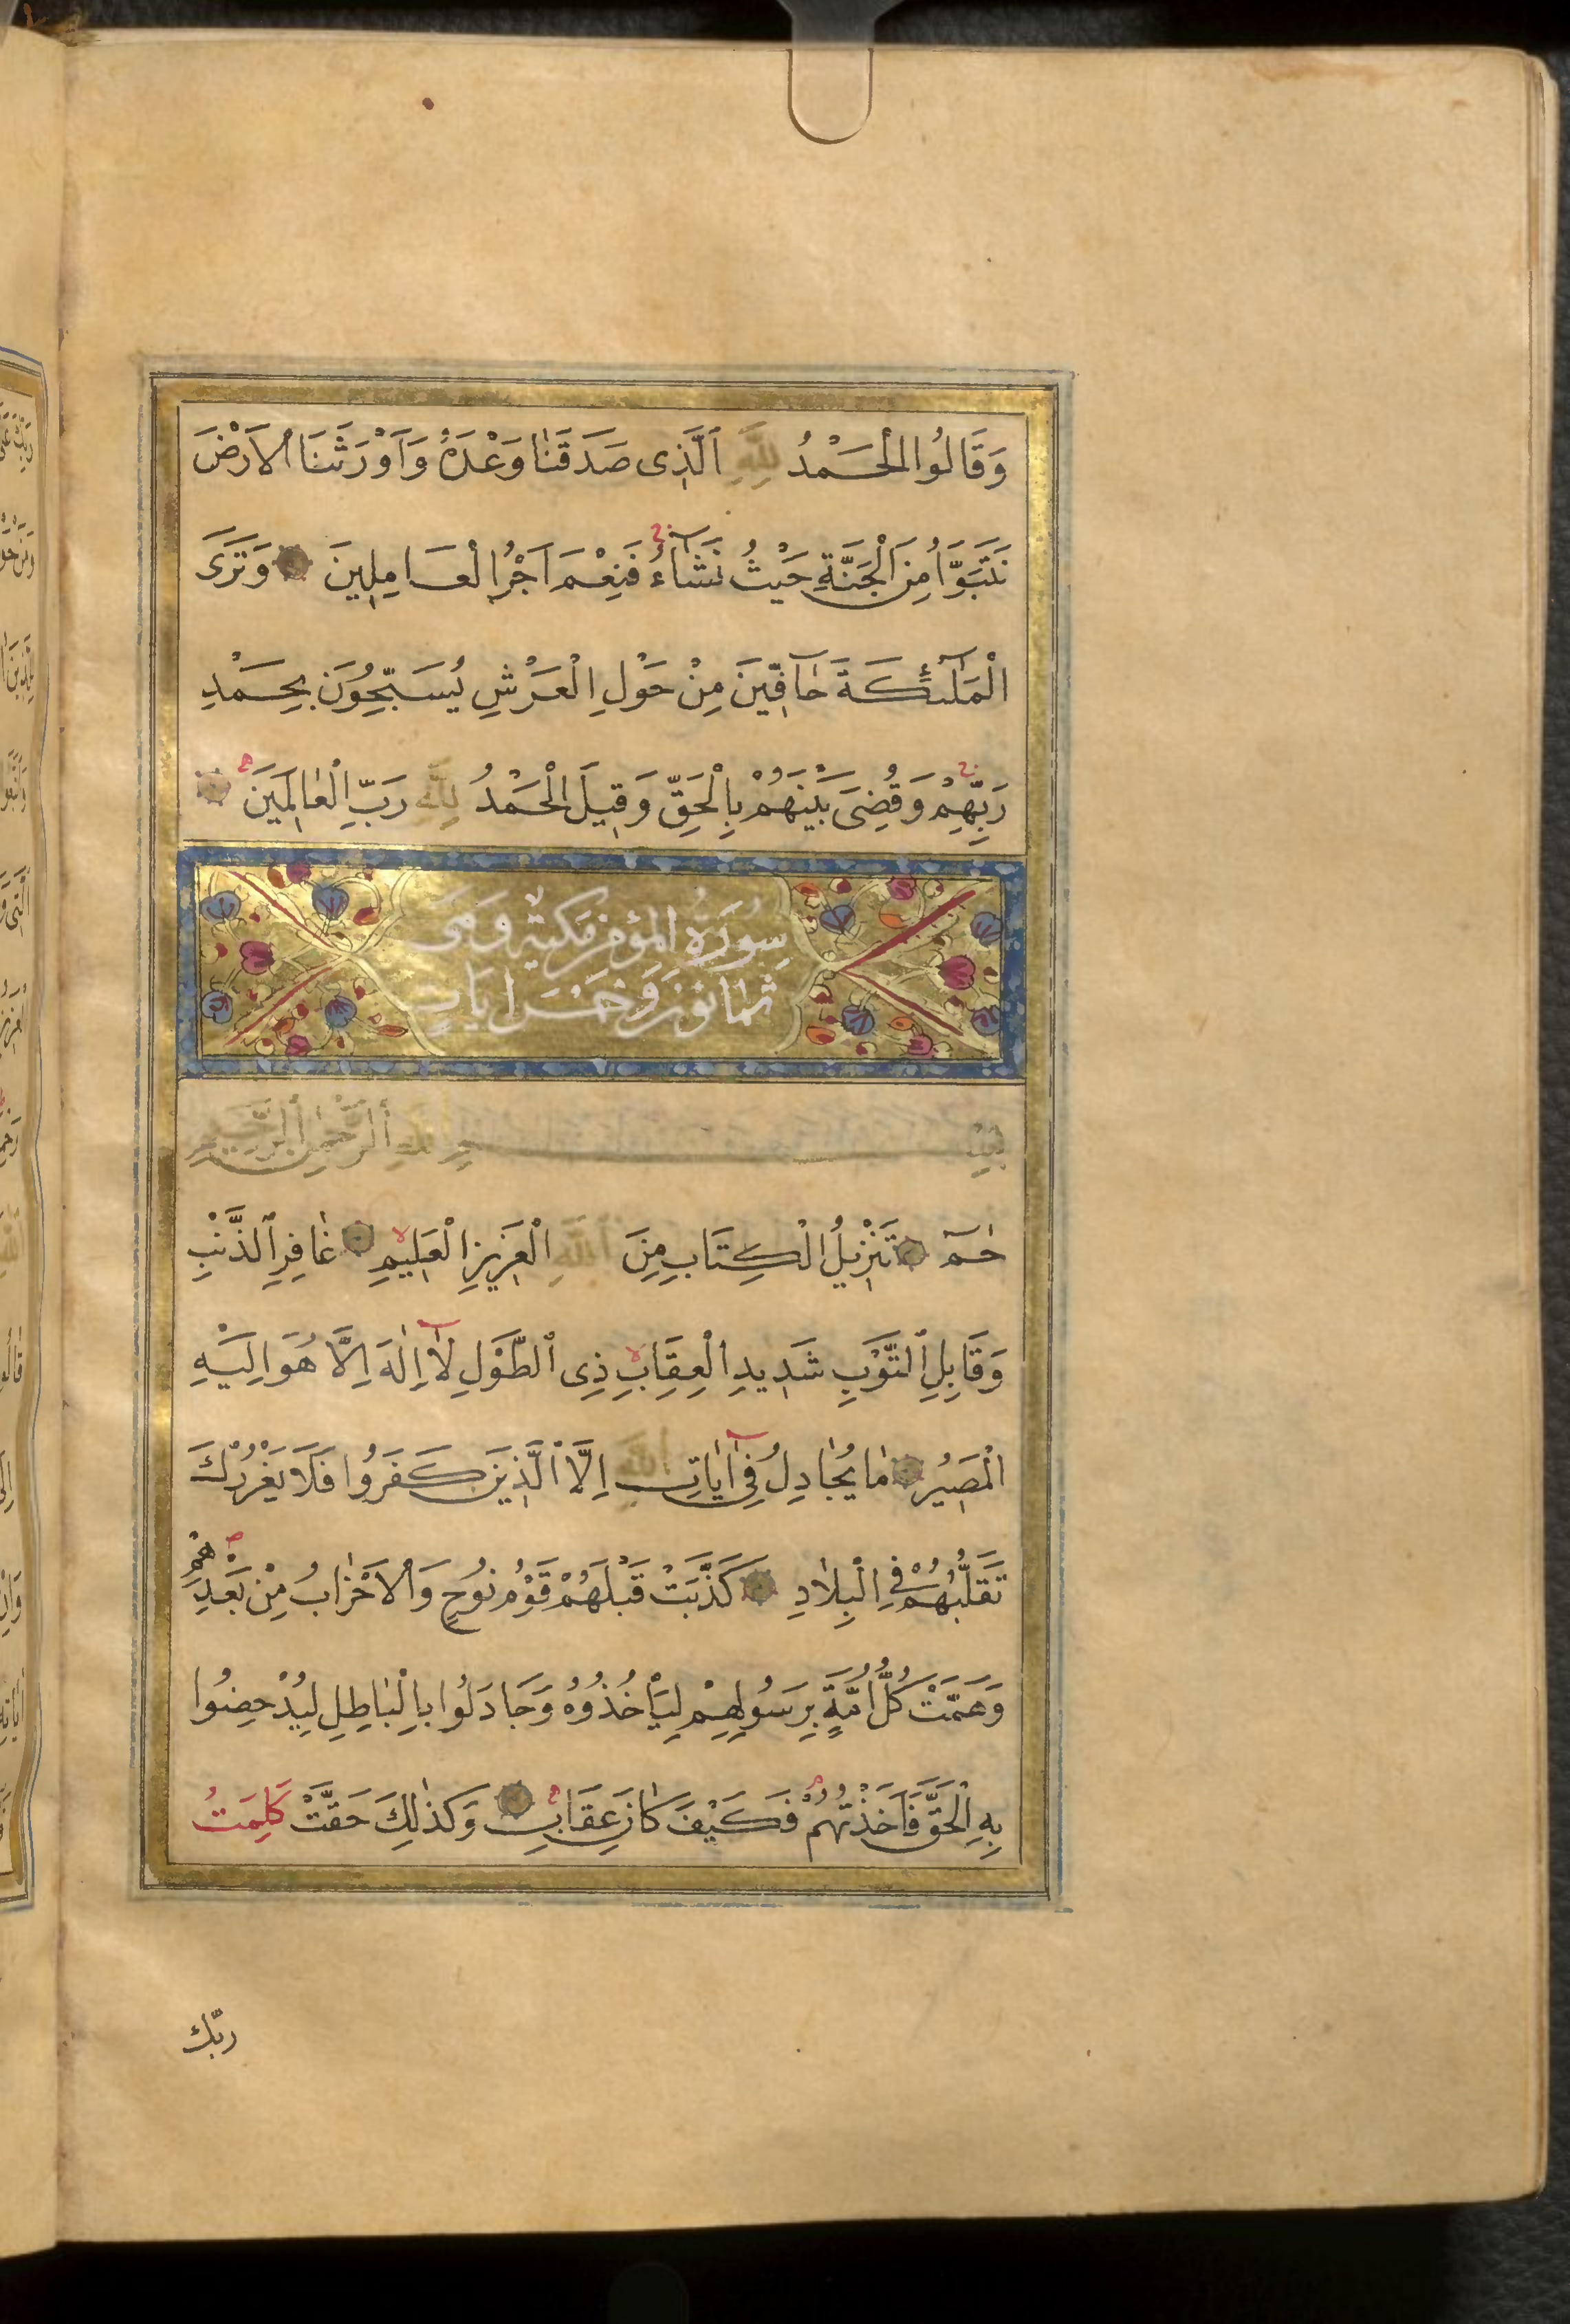 وَقَالُوا الْحَمْدُ لِلَّهِ اَلَّذِى صَدَقَنَا وَعْدَهُ وَاَوْرَثَنَا الْاَرْضَ
نَتَبَوَّاُ مِنَ الْجَنَّةِ حَيْثُ نَشَآءُ فَنِعْمَ اَجْرُ الْعَامِلِينَ وَتَرَى
الْمَلٰٓئِكَةَ حَآفِّينَ مِنْ حَوْلِ الْعَرْشِ يُسَبِّحُونَ بِحَمْدِ
رَبِّهِمْ وَقُضِىَ بَيْنَهُمْ بِالْحَقِّ وَقِيلَ الْحَمْدُ لِلّٰهِ رَبِّ الْعَالَمِينَ
سورَة المؤمن مكية وهى
ثمانون وخمس ايات
بِسْمِ اللهِ الرَّحْمٰنِ الرَّحِيمِ
حٰمٓ تَنْزِيلُ الْكِتَابِ مِنَ اللّٰهِ الْعَزِيزِ الْعَلِيمِ غَافِرِ الذَّنْبِ
وَقَابِلِ التَّوْبِ شَدِيدِ الْعِقَابِ ذِى الطَّوْلِ لَآ اِلٰهَ اِلَّا هُوَ اِلَيْهِ
الْمَصِيرُ مَا يُجَادِلُ فِىٓ اٰيَاتِ اللّٰهِ اِلَّا الَّذِينَ كَفَرُوا فَلَا يَغْرُرْكَ
تَقَلُّبُهُمْ فِى الْبِلَادِ كَذَّبَتْ قَبْلَهُمْ قَوْمُ نُوحٍ وَالْاَحْزَابُ مِنْ بَعْدِهِمْ
وَهَمَّتْ كُلُّ اُمَّةٍ بِرَسُولِهِمْ لِيَأْخُذُوهُ وَجَادَلُوا بِالْبَاطِلِ لِيُدْحِضُوا
بِهِ الْحَقَّ فَاَخَذْتُهُمْ فَكَيْفَ كَانَ عِقَابِ وَكَذٰلِكَ حَقَّتْ كَلِمَتُ
ربّك